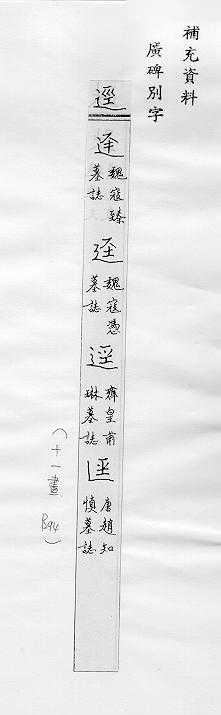 補充資料
廣碑別字
逕
魏寇臻
墓誌
魏寇憑
墓誌
逕
齊皇甫
琳墓誌
唐趙知
慎墓誌
(十一畫 B94)